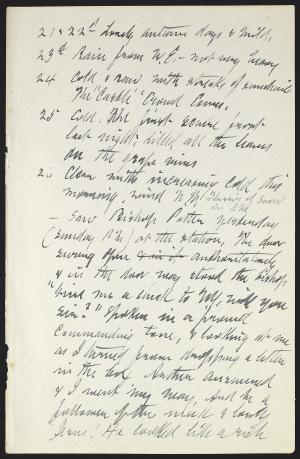 21 & 22d Lovely autumn days & mild.
23d Rain from N.E. - not very heavy
24 Cold & raw with streaks of sunshine
The "Castle" crowd came.
25 Cold. The first severe frost
last night: killed all the leaves
on the grape vines
26 Clear with increasing cold this
morning, wind N.W. Flurries of snow
in day
- Saw Bishop Potter yesterday
(Sunday) at the station. The door
swung open authoritatively
& in the door way stood the Bishop
"Find me a cab to  will you
Sir?" Spoken in a proud
commanding tone, & looking at me
as I turned from dropping a letter
in the box. Neither answered
& I went my way. And he a
follower of the meek & lowly
Jesus! He looked like a rich